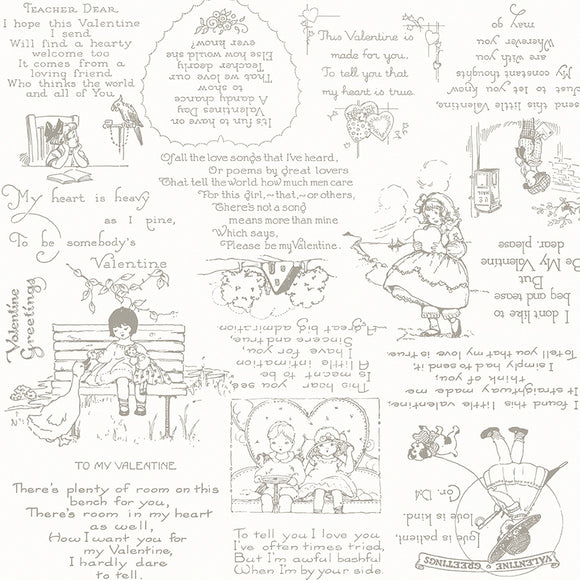 TEACHER DEAR
I hope this Valentine
I send
Will find a hearty
welcome too
It comes from a
loving friend
Who thinks the world
and all of You
It's fun to have on
Valentines Day
A dandy chance
to show
That we love our
Teacher dearly
Else how would she
ever know?
This Valentine is
made for you,
To tell you that
my heart is true.
Just to let you know
My constant thoughts
are with you
Wherever you
may go
I send this little Valentine,
Of all the love songs that I've heard,
Or poems by great lovers
That tell the world how much men care
For this girl,-that,-or others,
There's not a song
means more than mine
Which says,
Please be my Valentine.
My heart is heavy
as I pine,
To be somebody's
Valentine
Valentine
Greetings
I don't like to
beg and tease
But
Be My Valentine
dear, please
This hear you see,
Is meant to be
A little intimation
I have for you,
Sincere and true,
A great big admiration
I found this little valentine,
It straightway made me
think of you,
I simply had to send it,
To tell you that my love is true.
TO MY VALENTINE
There's plenty of room on this
bench for you,
There's room in my heart
as well,
How I want you for
my Valentine,
I hardly dare
to tell.
To tell you I love you
I've often times tried,
But I'm awful bashful
When I'm by your side.
VALENTINE GREETINGS
Love is patient,
Love is kind.
Cor. 13:4